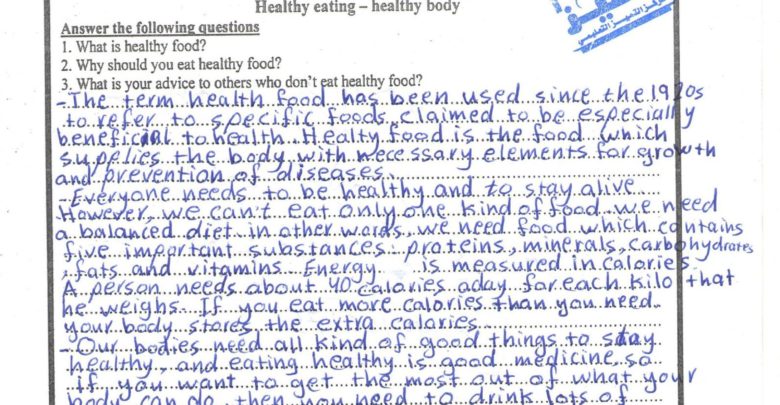 Healthy eating – healthy body
Answer the following questions
1. What is healthy food?
2. Why should you eat healthy food?
3. What is your advice to others who don't eat healthy food?
- The term health food has been used since the 1920s
to refer to specific foods claimed to be especially
beneficial to health. Healty food is the food (which
supplies the body with necessary elements for growth
and prevention of diseases
- Everyone needs to be healthy and to stay alive
However, we can't eat only one kind of food. we need
a balanced diet in other words, we need food which contains
five important substances: proteins, minerals, carbohydrates
, fats and vitamins Energy is measured in calories
A person needs about 40 calories aday for each kilo that
he weighs. If you eat more calories than you need
your body stores the extra calories
- Our bodies need all kind of good things to stay
healthy, and eating healthy is good medicine, so
if you want to get the most out of what your
body can do, then you need to drink lots of